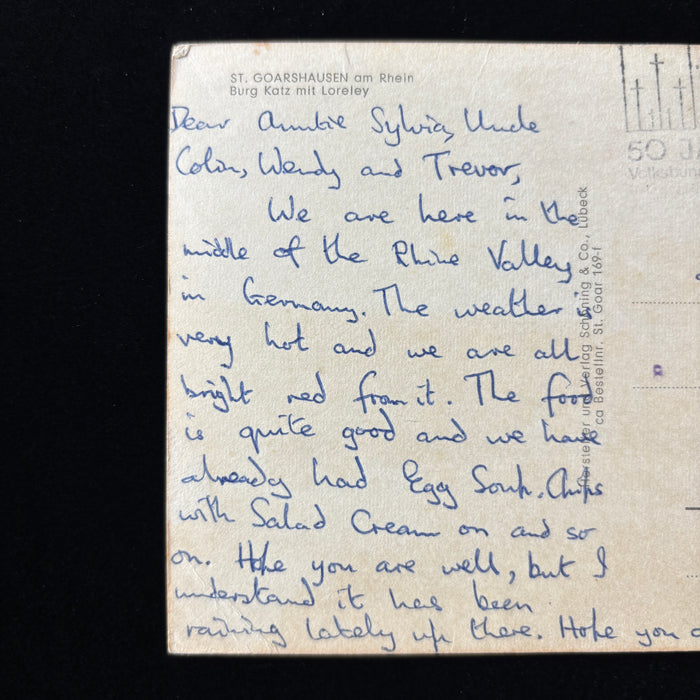 ST. GOARSHAUSEN am Rhein
Burg Katz mit Loreley
Dear Auntie Sylvia, Uncle
Colin, Wendy and Trevor,
We are here in the
middle of the Rhine Valley
in Germany. The weather is
very hot and we are all
bright red from it. The food
is quite good and we have
already had Egg Soup. Chips
with Salad Cream on and so
on. Hope you are well, but I
understand it has been
raining lately up there. Hope you
50 JA
Volksbun
Hersteller und Verlag Schöning & Co., Lübeck
ca Bestellnr. St. Goar 169-f